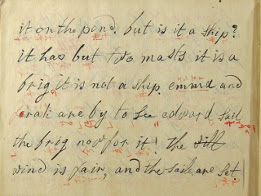 it on the pond. but is it a ship?
it has but two masts it is a
brig it is not a ship, emma and
are by to see edward sail
the brig now for it! the still
wind is fair, and the sails are set